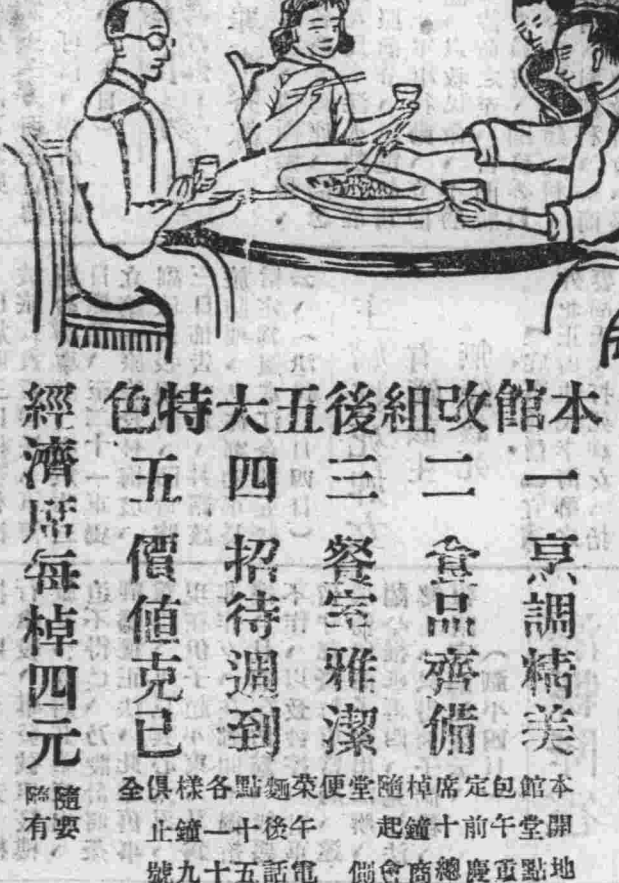 本館改組後五大特色
一 烹調精美
二 食品齊備
三 餐室雅潔
四 招待週到
五 價值克已
經濟席每棹四元
隨要
隨有
本館包定席棹隨堂便菜麵點各樣俱全
開堂午前十鐘起 午後十一鐘止
地點重慶總商會側 電話五十九號